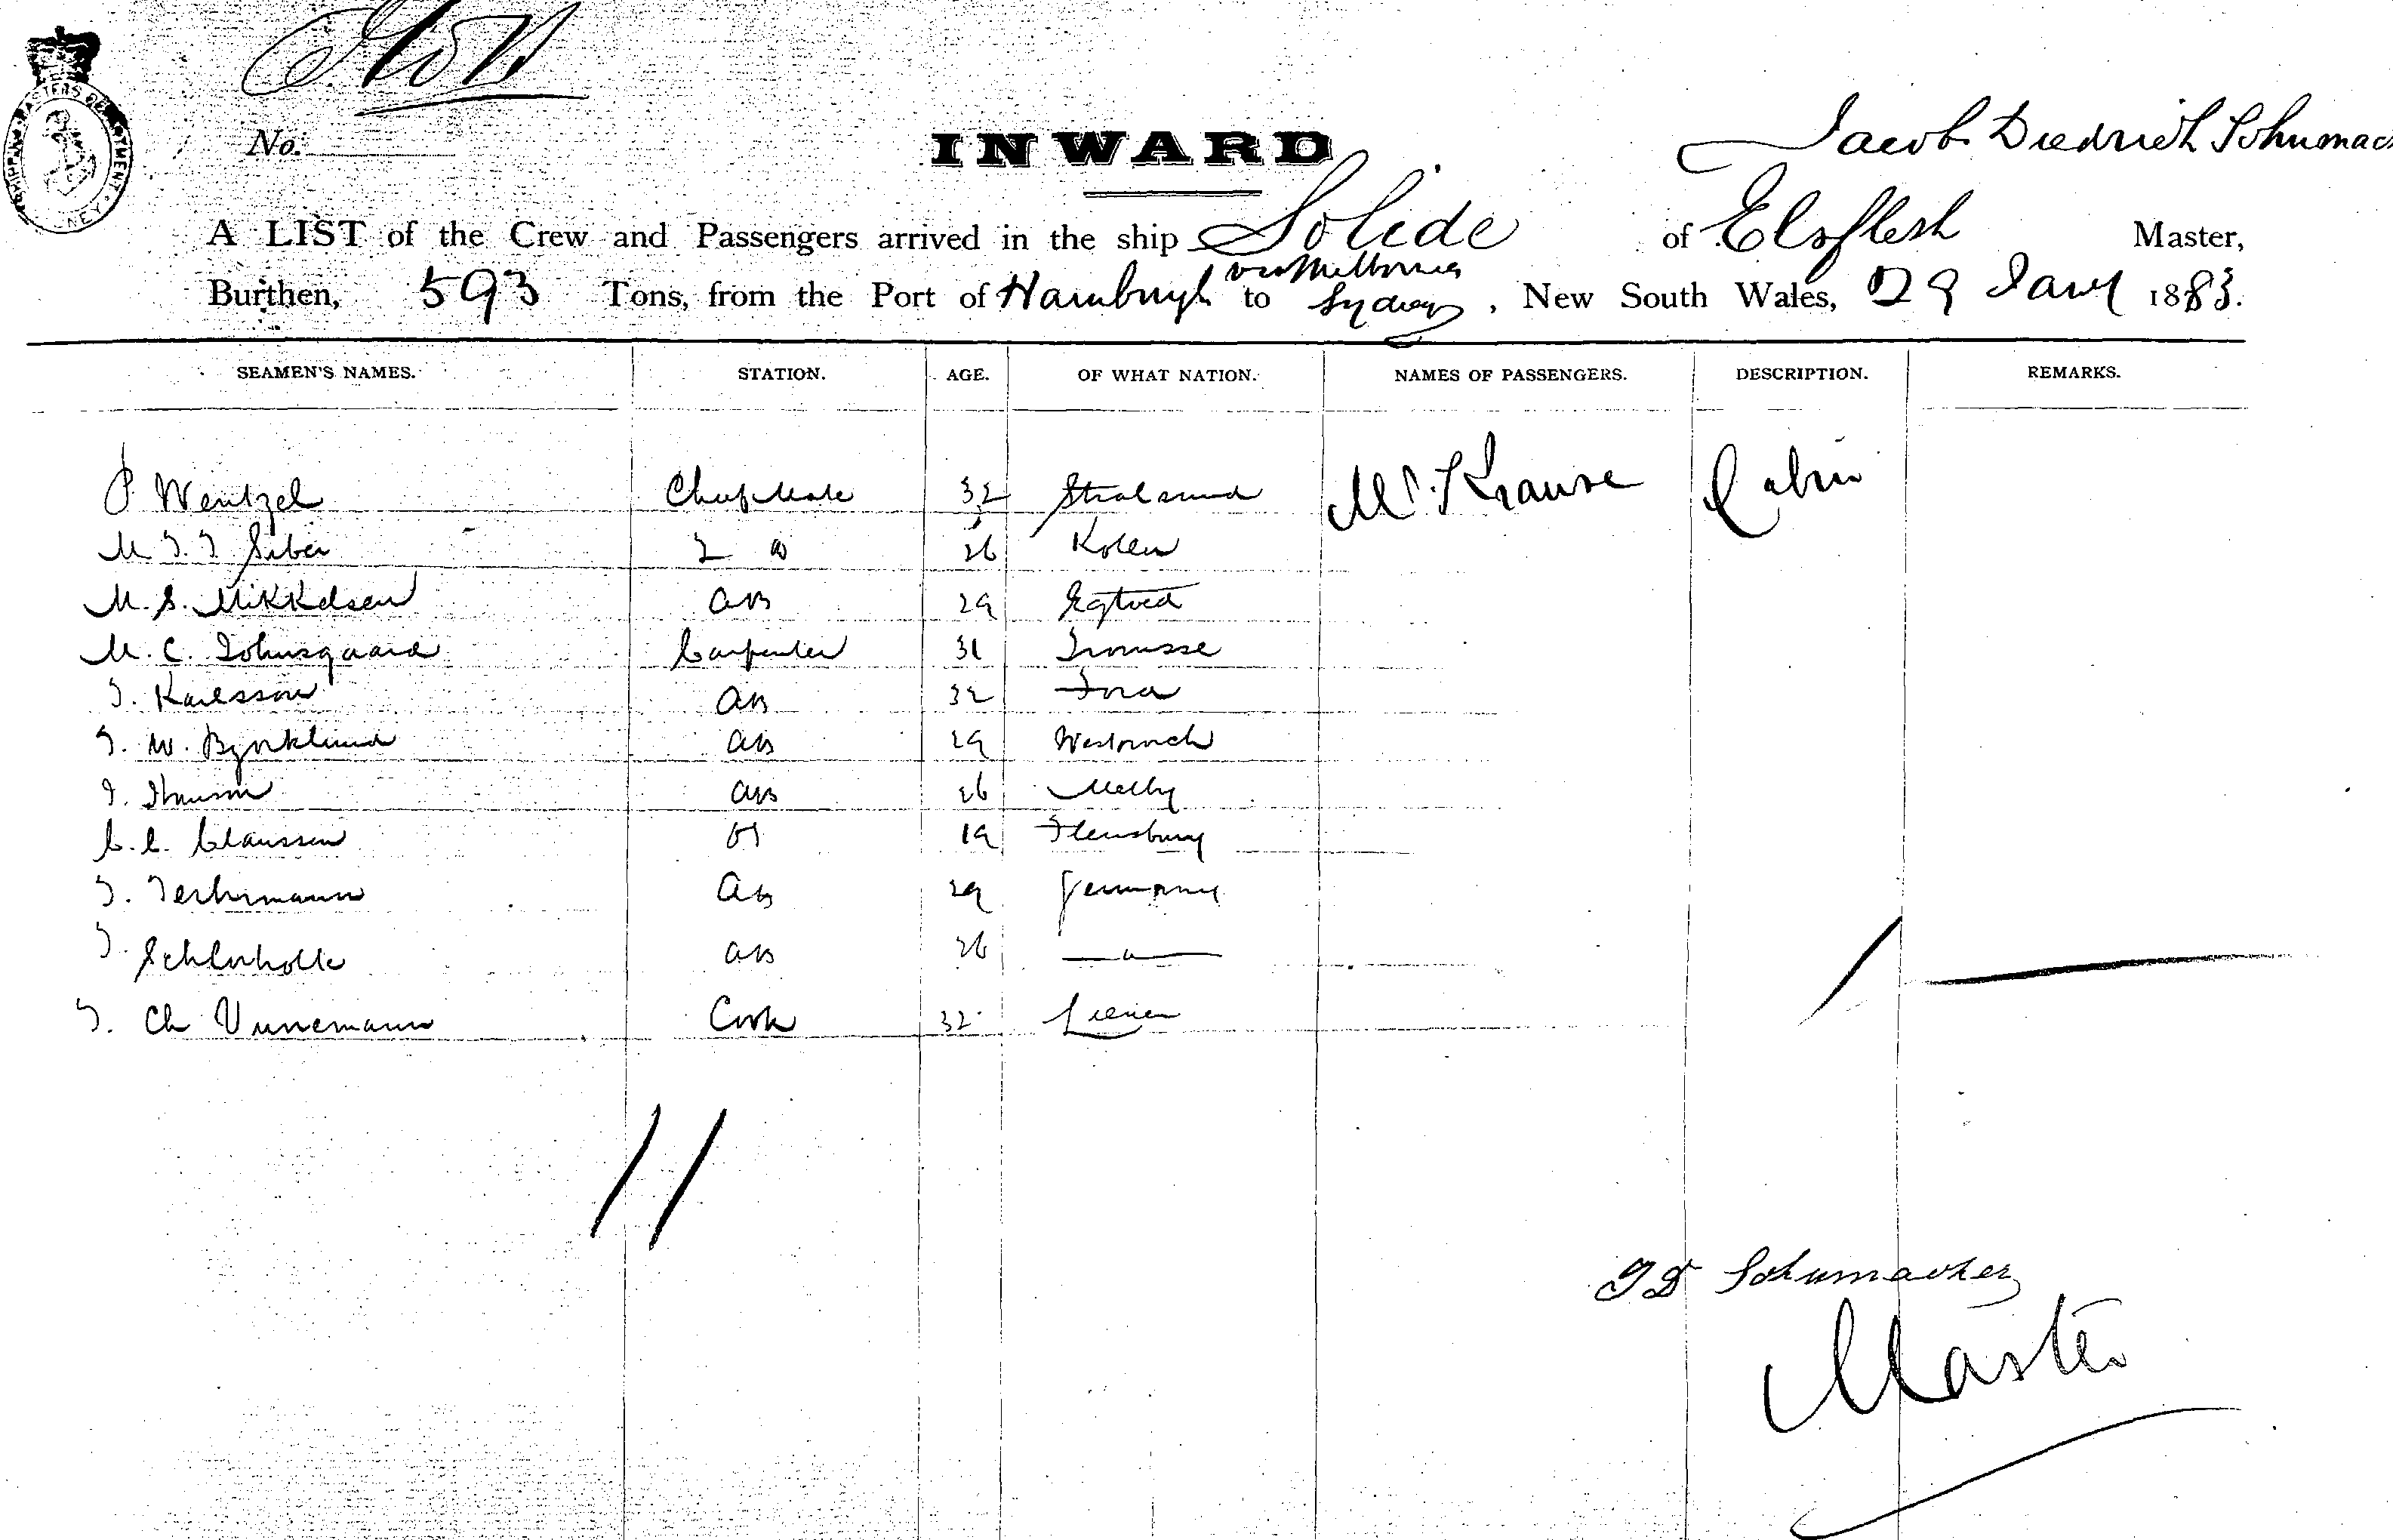 SHIPPING MASTERS DEPARTMENT
No.
INWARD
Jacob Diedrich Schumac
A LIST of the Crew and Passengers arrived in the ship Solide of Elsfleth Master,
via Melbourne
Burthen, 593 Tons, from the Port of Hamburgh to Sydney, New South Wales, 29 Jany 1883.
SEAMEN'S NAMES. STATION. AGE. OF WHAT NATION. NAMES OF PASSENGERS. DESCRIPTION. REMARKS.
P. Wentzel Chief Mate 32 Stralsund Mr. Krause Cabin
M. J. J. Siber 2 26
M. S. Mikkelsen AB 29 Egtved
M. C. Johnsgaard Carpenter 31
J. Karlsson AB 32
J. W. Bjorklund AB 29
J. AB 26 Melby
C. C. Claussen OS 19 Flensburg
J. AB 29 Germany
J. AB 26
J. Ch Cook 32
11
1
J D Schumacher
Master